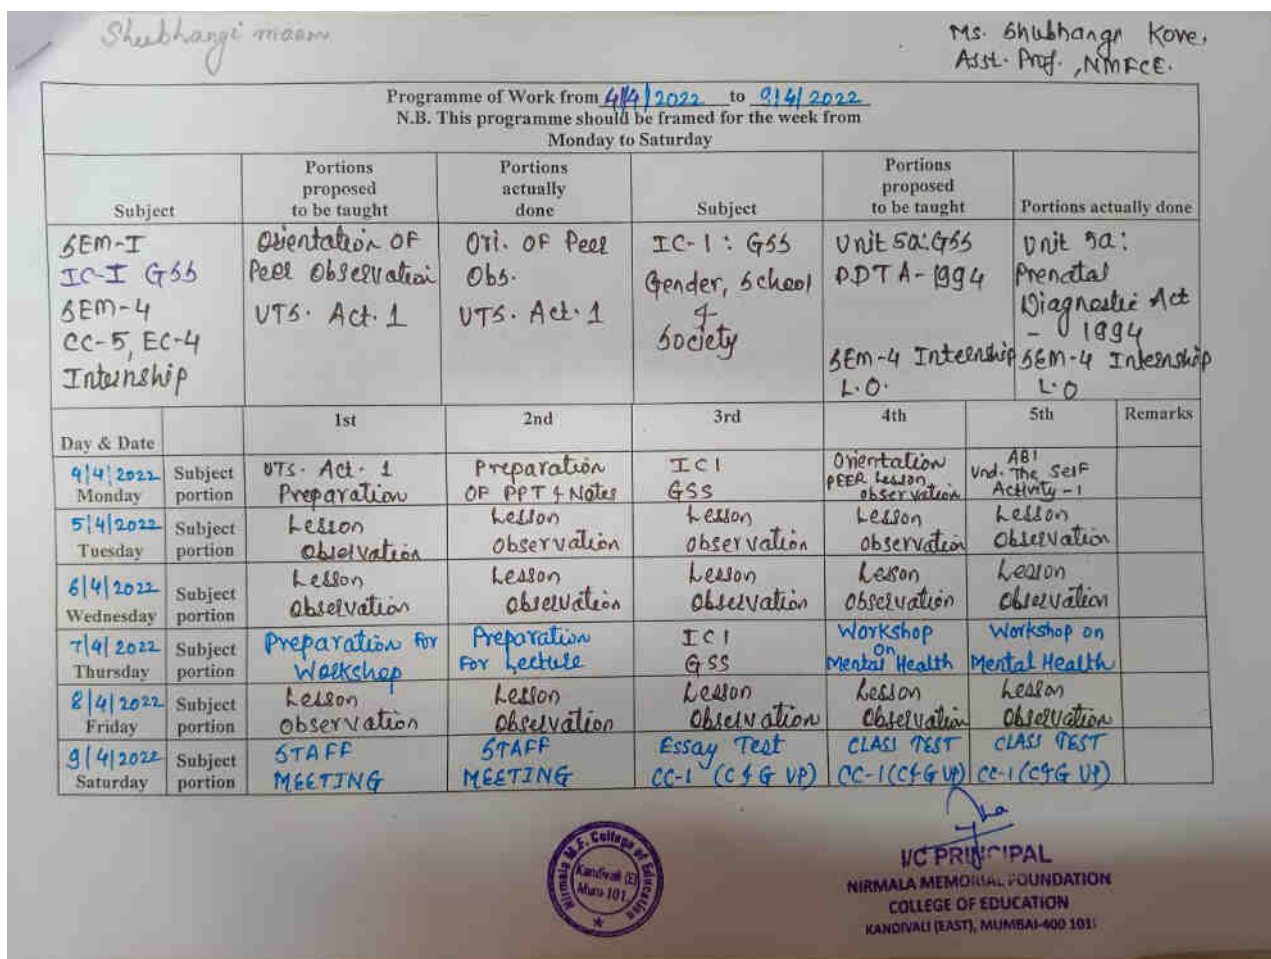 Shubhangi maam
Ms. Shubhangi Kove,
Asst. Prof., NMFCE.
Programme of Work from 4/4/2022 to 9/4/2022
N.B. This programme should be framed for the week from
Monday to Saturday
Subject
Portions
proposed
to be taught
Portions
actually
done
Subject
Portions
proposed
to be taught
Portions actually done
SEM-I
IC-I GSS
SEM-4
CC-5, EC-4
Internship
Orientation OF
Peer Observation
UTS. Act. 1
Ori. OF Peer
Obs.
UTS. Act. 1
IC-1: GSS
Gender, School
&
Society
Unit 5a: GSS
PDTA-1994
SEM-4 Internship
L.O.
Unit 5a:
Prenatal
Diagnostic Act
- 1994
SEM-4 Internship
L.O
Day & Date
1st
2nd
3rd
4th
5th
Remarks
4/4/2022
Monday
Subject
portion
UTS. Act. 1
Preparation
Preparation
OF PPT & Notes
IC1
GSS
Orientation
PEER Lesson
observation
AB1
Und. The Self
Activity-1
5/4/2022
Tuesday
Subject
portion
Lesson
Observation
Lesson
Observation
Lesson
observation
Lesson
observation
Lesson
Observation
6/4/2022
Wednesday
Subject
portion
Lesson
Observation
Lesson
Observation
Lesson
Observation
Lesson
Observation
Lesson
Observation
7/4/2022
Thursday
Subject
portion
Preparation For
Workshop
Preparation
For Lecture
IC1
GSS
Workshop
on
Mental Health
Workshop on
Mental Health
8/4/2022
Friday
Subject
portion
Lesson
Observation
Lesson
Observation
Lesson
Observation
Lesson
Observation
Lesson
Observation
9/4/2022
Saturday
Subject
portion
STAFF
MEETING
STAFF
MEETING
Essay Test
CC-1 (C&G UP)
CLASS TEST
CC-1 (C&G UP)
CLASS TEST
CC-1 (C&G UP)
Nirmala M.F. College of Education
Kandivali (E)
Mum-101.
I/C PRINCIPAL
NIRMALA MEMORIAL FOUNDATION
COLLEGE OF EDUCATION
KANDIVALI (EAST), MUMBAI-400 101